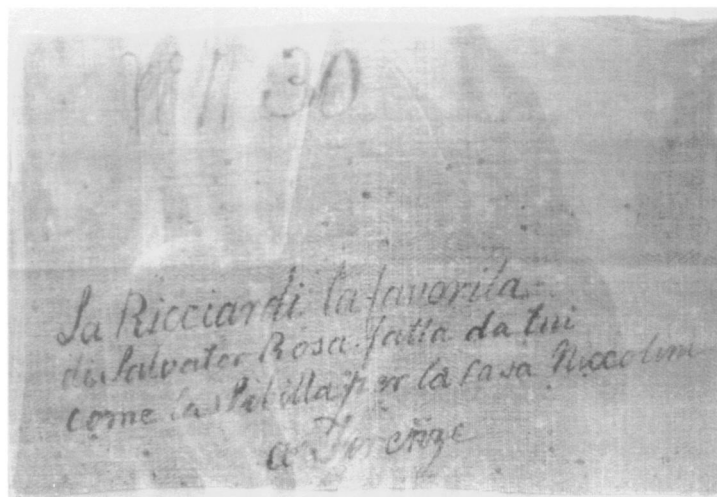 N 30
La Ricciardi la favorita
di Salvator Rosa fatta da lui
come la Sibilla per la Casa Niccolini
a Firenze